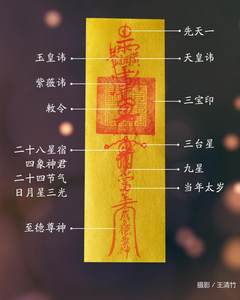 先天一
玉皇讳
天皇讳
紫薇讳
敕令
三宝印
三台星
二十八星宿
四象神君
二十四节气
日月星三光
九星
当年太岁
至德尊神
摄影/王清竹